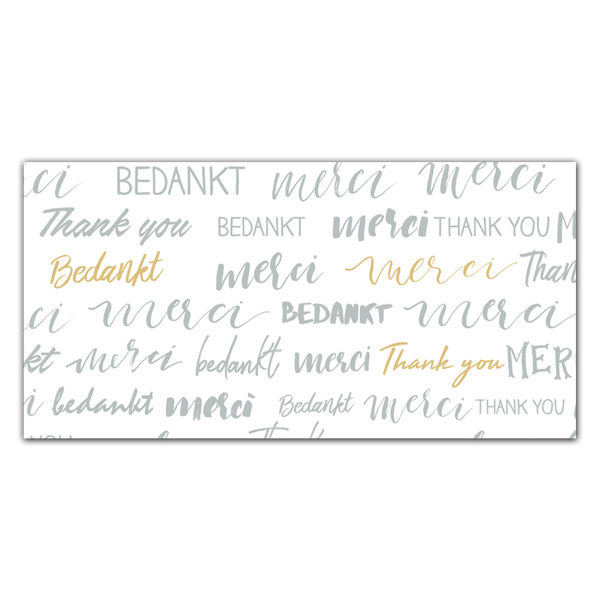 ci BEDANKT merci merci
Thank you BEDANKT merci THANK YOU M
Bedankt merci merci Than
ci merci BEDANKT merci
kt merci bedankt merci Thank you MER
i bedankt merci Bedankt merci THANK YOU
YOU